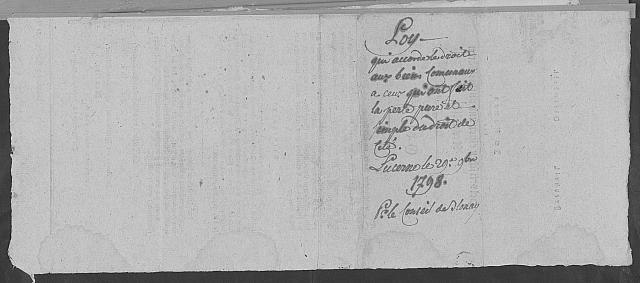 Loy
qui accorde le droit
aux biens Comunaux
a ceux qui ont fait
la perte pure et
simple du droit de
Cité.
Lucerne le 29e 9bre
1798.
Pr. le Conseil de Blonay